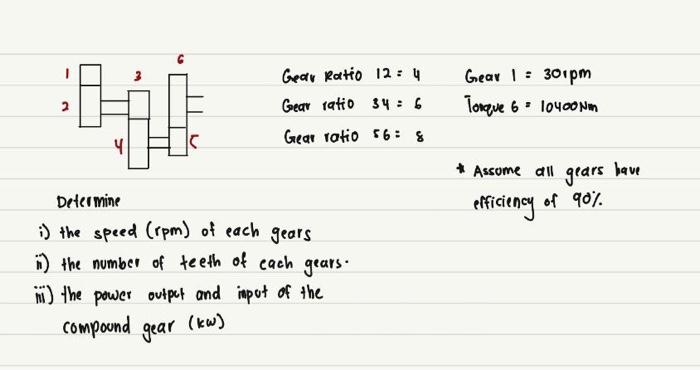 6
1
3
2
4
5
Gear Ratio 12 = 4
Gear 1 = 30rpm
Gear ratio 34 = 6
Torque 6 = 10400Nm
Gear ratio 56 = 8
* Assume all gears have
efficiency of 90%.
Determine
i) the speed (rpm) of each gears
ii) the number of teeth of each gears.
iii) the power output and input of the
compound gear (kw)